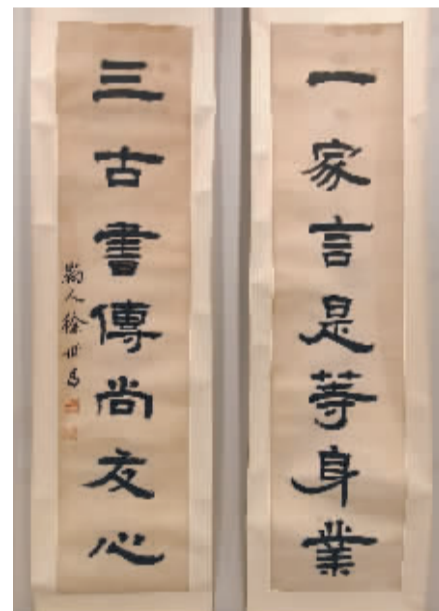 一家言是等身業
三古書傳尚友心
徐世昌